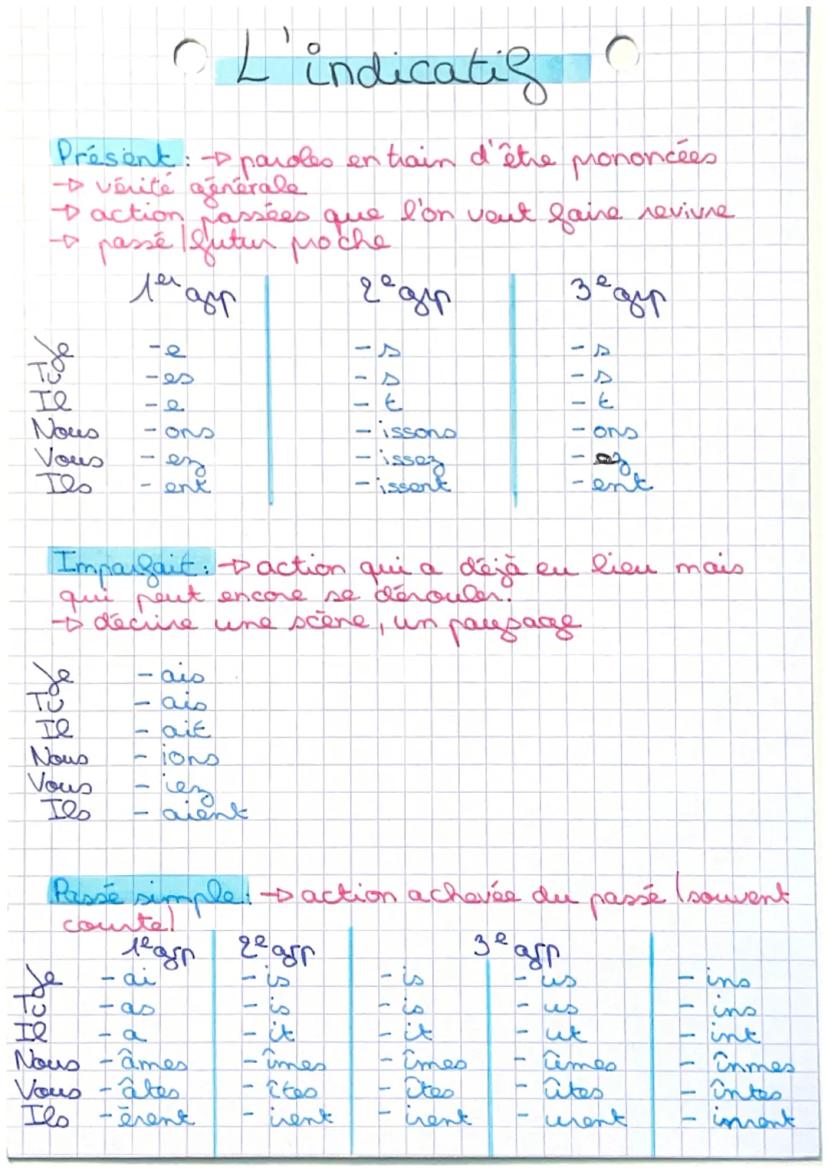 L'indicatif
Présent : → paroles en train d'être prononcées
→ vérité générale
→ action passées que l'on veut faire revivre
→ passé / futur proche
1er grp 2e grp 3e grp
Je -e -s -s
Tu -es -s -s
Il -e -t -t
Nous -ons -issons -ons
Vous -ez -issez -ez
Ils -ent -issent -ent
Imparfait : → action qui a déjà eu lieu mais
qui peut encore se dérouler.
→ décrire une scène, un paysage
Je -ais
Tu -ais
Il -ait
Nous -ions
Vous -iez
Ils -aient
Passé simple : → action achevée du passé (souvent
courte)
1e grp 2e grp 3e grp
Je -ai -is -is -us -ins
Tu -as -is -is -us -ins
Il -a -it -it -ut -int
Nous -âmes -îmes -îmes -ûmes -înmes
Vous -âtes -îtes -îtes -ûtes -întes
Ils -èrent -irent -irent -urent -inrent